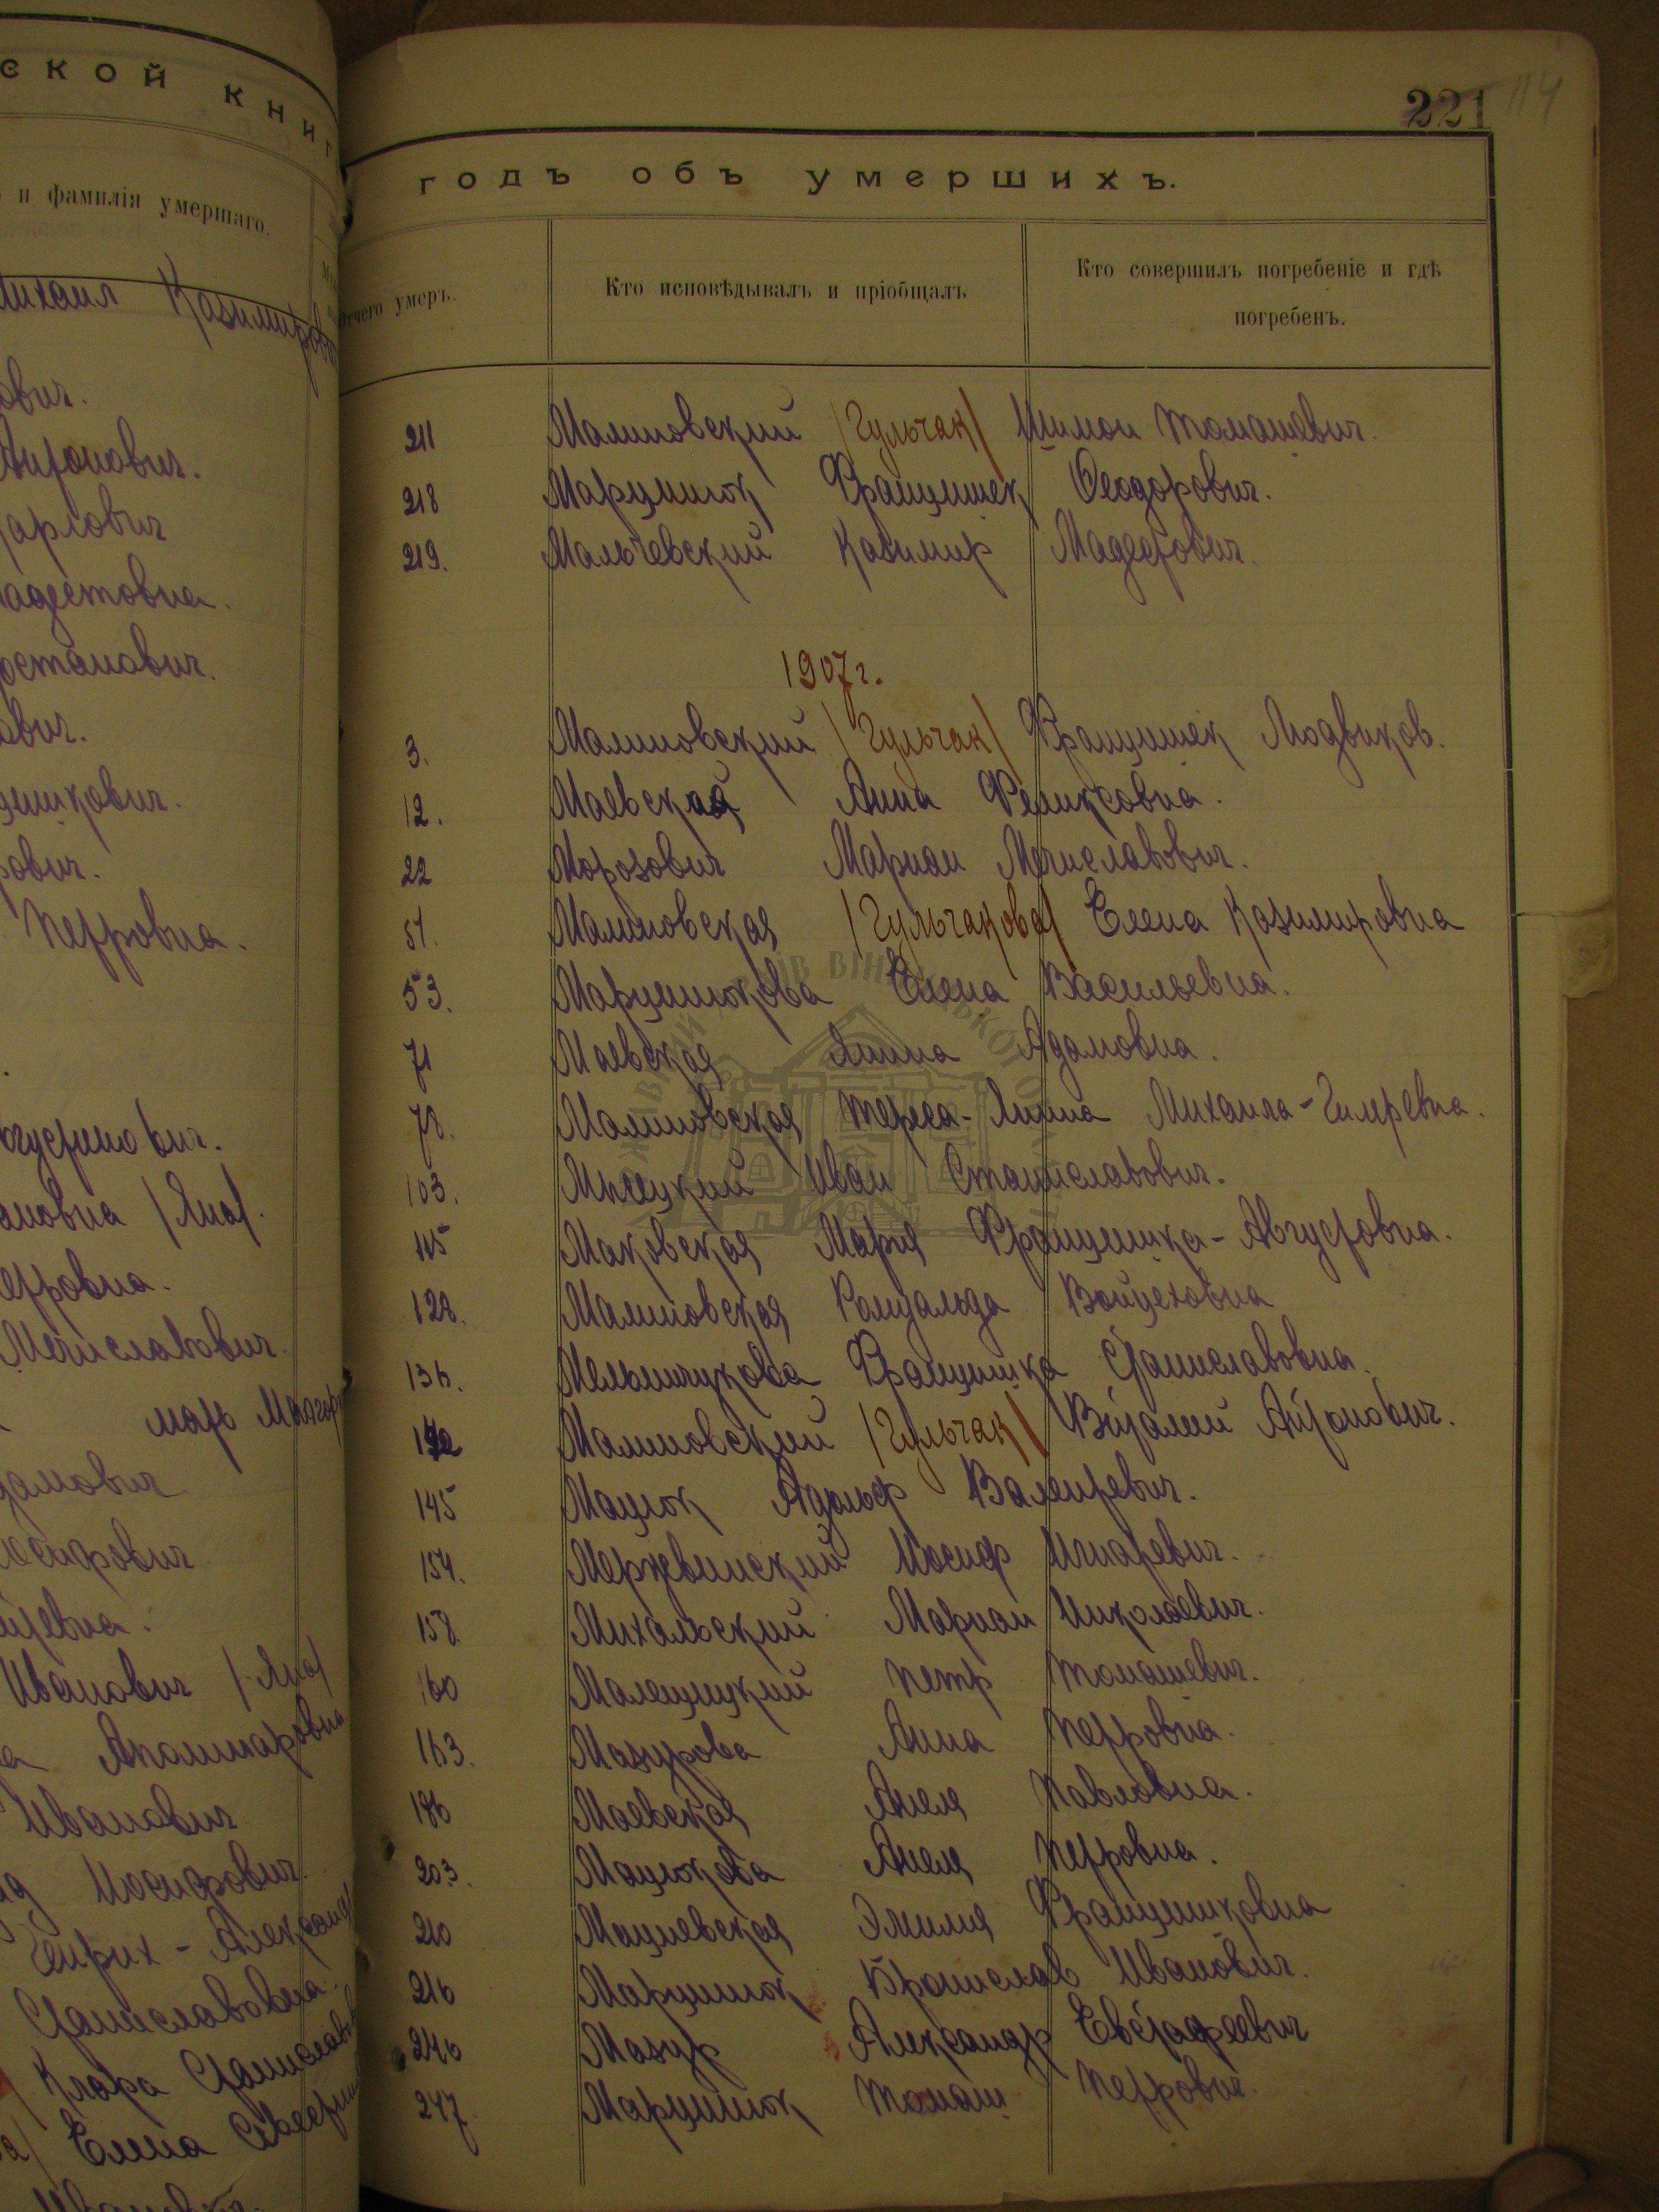 ской книг
и фамилія умершаго.
Михаил Казимирович
ович.
Антонович.
Карлович
адестовна.
остонович.
ович.
цишкович.
ович.
Петровна.
вгустинович.
ановна /Яна/.
етровна.
Мечиславович.
Адамович
Иосифович
Иванович /Яна/
Аполинаровна
Иванович
Иосифович.
Генрих - Александр
Станиславовна.
Клара Станиславов
Елена Северин
Иванович.
221 114
годъ объ умершихъ.
Отчего умеръ.
Кто исповѣдывалъ и пріобщалъ
Кто совершилъ погребеніе и гдѣ погребенъ.
211 Малиновский /Гульчак/ Шимон Томашевич.
218 Марцинюк Францишек Феодорович.
219. Мальчевский Казимир Маддеович.
1907 г.
3. Малиновский /Гульчак/ Францишек Людвиков.
12. Маевская Анна Феликсовна.
22 Морозович Мариан Мечиславович.
51. Малиновская /Гульчакова/ Елена Казимировна
53. Марцинюкова Елена Васильевна.
71 Маевская Янина Адамовна.
78. Малиновская Тереса-Янина Михаила-
103. Иван Станиславович.
115 Маковская Мария Францишка-Августовна.
128. Малиновская Ромуальда Войцеховна
136. Мельничукова Францишка Станиславовна.
142 Малиновский /Гульчак/ Виталий Антонович.
145 Мацюк Адольф Валентевич.
154. Мержвинский Иосиф Игнатевич.
158. Михальский Мариан Николаевич.
160 Малещицкий Петр Томашевич.
163. Мазурова Анна Петровна.
176 Маевская Анеля Павловна.
203. Мацюкова Анеля Петровна.
210 Мациевская Эмилия Францишковна
216 Марцинюк Бронислав Иванович.
246 Мазур Александр Евстафеевич
247. Марцинюк Томаш Петрович.